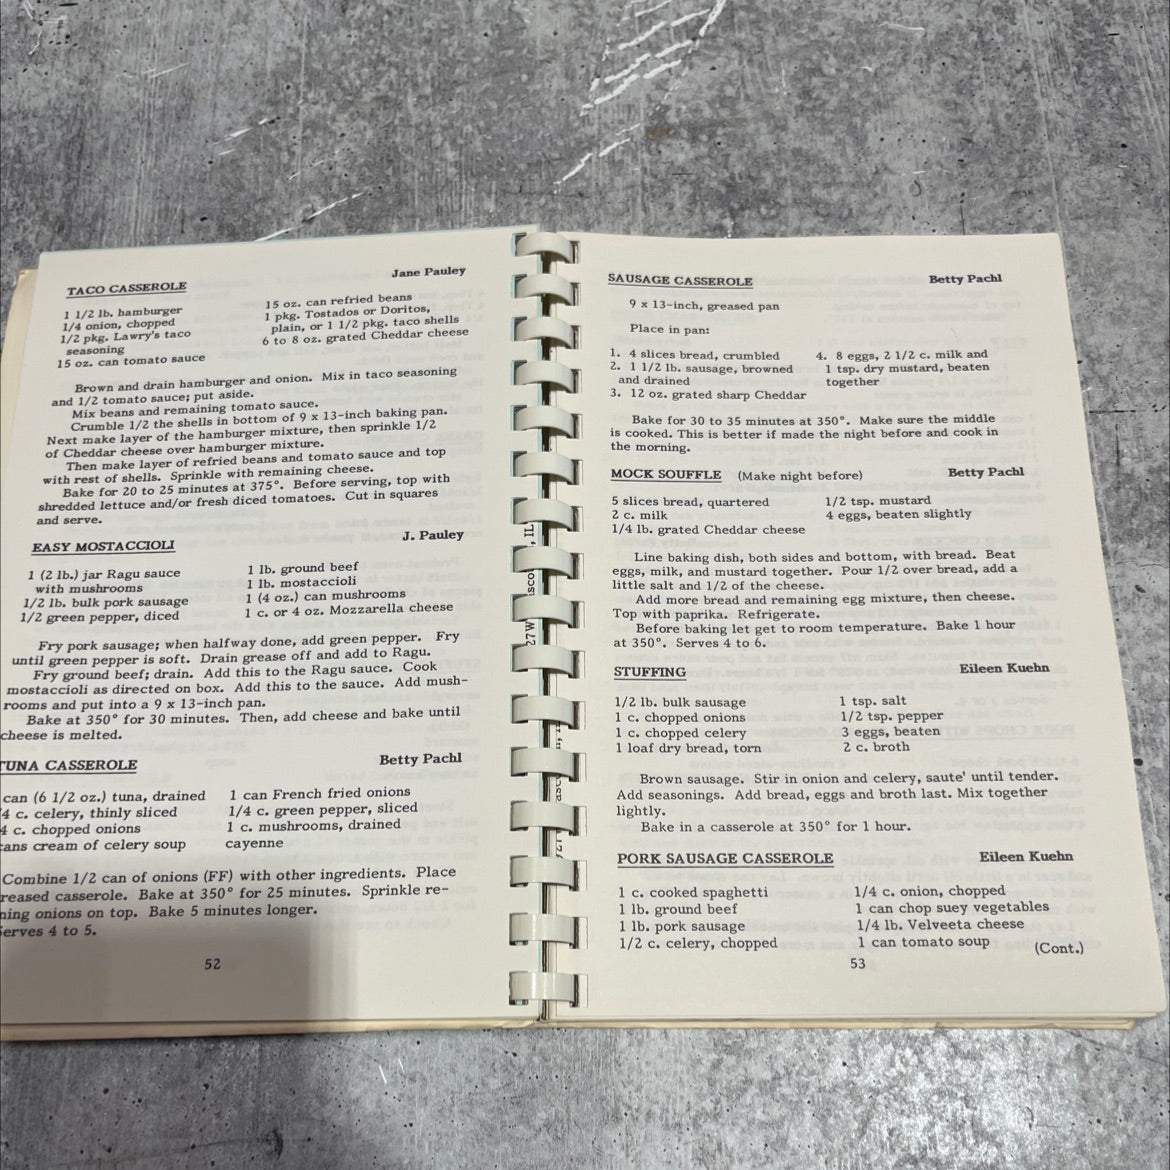 TACO CASSEROLE Jane Pauley
1 1/2 lb. hamburger
1/4 onion, chopped
1/2 pkg. Lawry's taco
seasoning
15 oz. can tomato sauce
15 oz. can refried beans
1 pkg. Tostados or Doritos,
plain, or 1 1/2 pkg. taco shells
6 to 8 oz. grated Cheddar cheese
Brown and drain hamburger and onion. Mix in taco seasoning
and 1/2 tomato sauce; put aside.
Mix beans and remaining tomato sauce.
Crumble 1/2 the shells in bottom of 9 x 13-inch baking pan.
Next make layer of the hamburger mixture, then sprinkle 1/2
of Cheddar cheese over hamburger mixture.
Then make layer of refried beans and tomato sauce and top
with rest of shells. Sprinkle with remaining cheese.
Bake for 20 to 25 minutes at 375°. Before serving, top with
shredded lettuce and/or fresh diced tomatoes. Cut in squares
and serve.
EASY MOSTACCIOLI J. Pauley
1 (2 lb.) jar Ragu sauce
with mushrooms
1/2 lb. bulk pork sausage
1/2 green pepper, diced
1 lb. ground beef
1 lb. mostaccioli
1 (4 oz.) can mushrooms
1 c. or 4 oz. Mozzarella cheese
Fry pork sausage; when halfway done, add green pepper. Fry
until green pepper is soft. Drain grease off and add to Ragu.
Fry ground beef; drain. Add this to the Ragu sauce. Cook
mostaccioli as directed on box. Add this to the sauce. Add mush-
rooms and put into a 9 x 13-inch pan.
Bake at 350° for 30 minutes. Then, add cheese and bake until
cheese is melted.
TUNA CASSEROLE Betty Pachl
can (6 1/2 oz.) tuna, drained
/4 c. celery, thinly sliced
c. chopped onions
cream of celery soup
1 can French fried onions
1/4 c. green pepper, sliced
1 c. mushrooms, drained
cayenne
Combine 1/2 can of onions (FF) with other ingredients. Place
reased casserole. Bake at 350° for 25 minutes. Sprinkle re-
ning onions on top. Bake 5 minutes longer.
Serves 4 to 5.
52
SAUSAGE CASSEROLE Betty Pachl
9 x 13-inch, greased pan
Place in pan:
1. 4 slices bread, crumbled
2. 1 1/2 lb. sausage, browned
and drained
3. 12 oz. grated sharp Cheddar
4. 8 eggs, 2 1/2 c. milk and
1 tsp. dry mustard, beaten
together
Bake for 30 to 35 minutes at 350°. Make sure the middle
is cooked. This is better if made the night before and cook in
the morning.
MOCK SOUFFLE (Make night before) Betty Pachl
5 slices bread, quartered
2 c. milk
1/4 lb. grated Cheddar cheese
1/2 tsp. mustard
4 eggs, beaten slightly
Line baking dish, both sides and bottom, with bread. Beat
eggs, milk, and mustard together. Pour 1/2 over bread, add a
little salt and 1/2 of the cheese.
Add more bread and remaining egg mixture, then cheese.
Top with paprika. Refrigerate.
Before baking let get to room temperature. Bake 1 hour
at 350°. Serves 4 to 6.
STUFFING Eileen Kuehn
1/2 lb. bulk sausage
1 c. chopped onions
1 c. chopped celery
1 loaf dry bread, torn
1 tsp. salt
1/2 tsp. pepper
3 eggs, beaten
2 c. broth
Brown sausage. Stir in onion and celery, saute' until tender.
Add seasonings. Add bread, eggs and broth last. Mix together
lightly.
Bake in a casserole at 350° for 1 hour.
PORK SAUSAGE CASSEROLE Eileen Kuehn
1 c. cooked spaghetti
1 lb. ground beef
1 lb. pork sausage
1/2 c. celery, chopped
1/4 c. onion, chopped
1 can chop suey vegetables
1/4 lb. Velveeta cheese
1 can tomato soup
(Cont.)
53